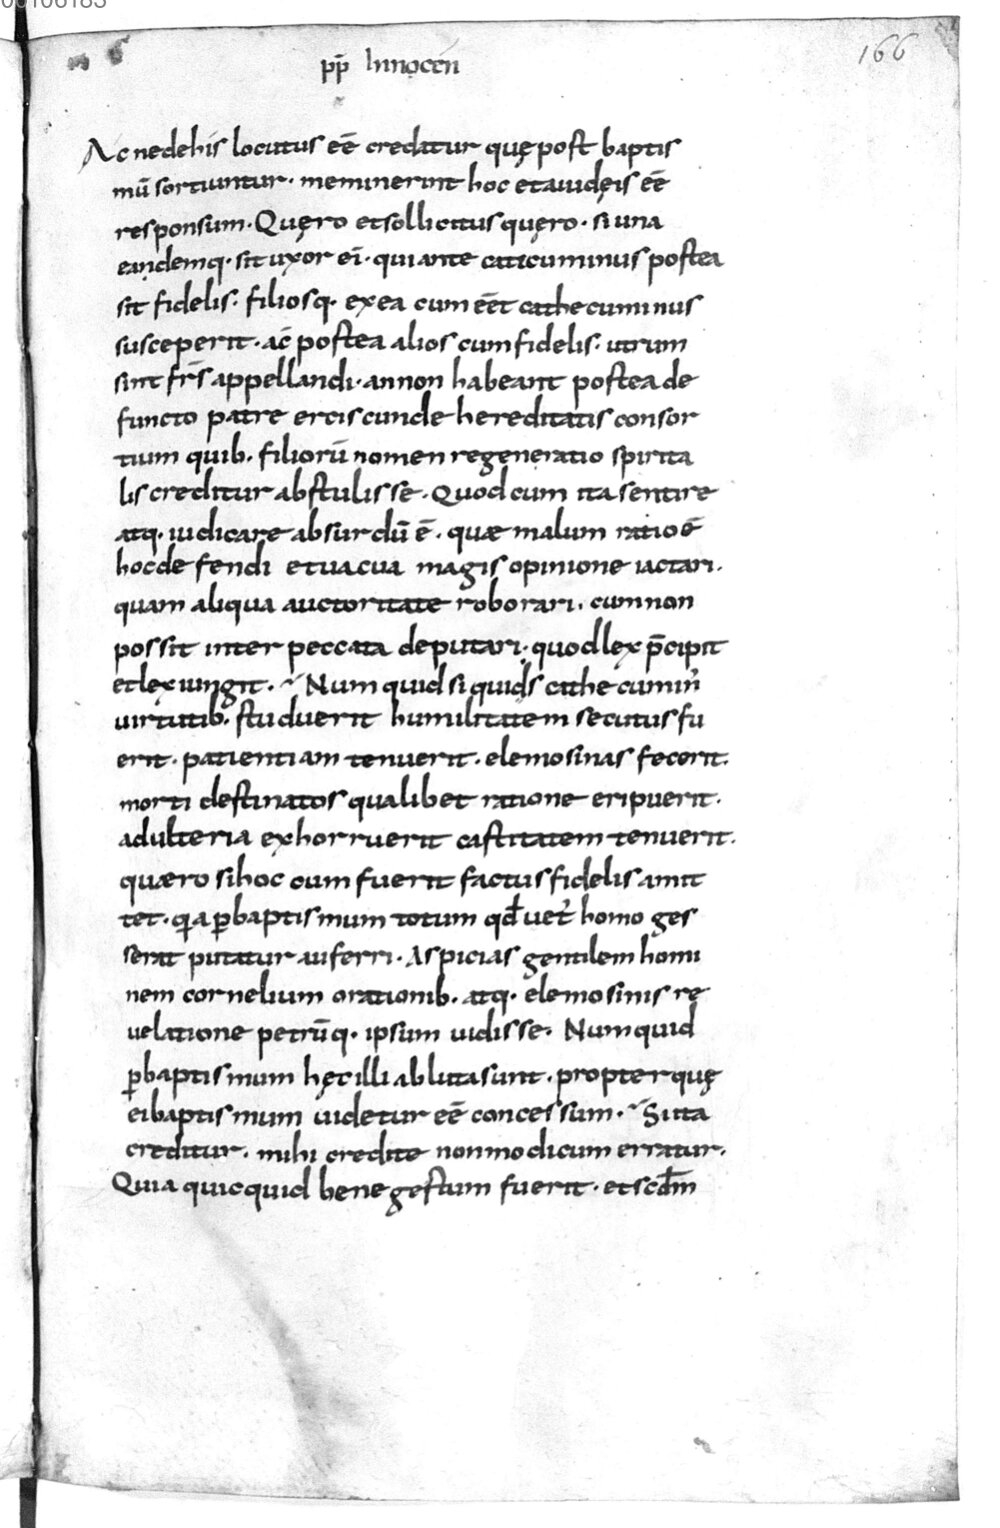 00106183
166
pp̄ Innocen̄
Ac nedehis locutus eē credatur quę post baptis
mū sortiuntur· meminerint hoc etaiudęis eē
responsum· Quęro etsollicitus quęro· si una
eandemq· sit uxor ei· qui ante caticuminus postea
sit fidelis· filiosq· exea cum eēt cathecuminus
susceperit· ac̄ postea alios cum fidelis· utrum
sint fr̄s appellandi· annon habeant postea de
functo patre erciscunde hereditatis consor
tium quib· filiorū nomen regeneratio spirita
lis creditur abstulisse· Quod cum ita sentire
atq· iudicare absurdū ē· quae malum ratio ē
hocde fendi etuacua magis opinione iactari·
quam aliqua auctoritate roborari· cum non
possit inter peccata deputari· quod lex p̄cipit
etlex iungit· Num quid si quids cathecumin᾽
uirtutib· studuerit humilitatem secutus fu
erit· patientiam tenuerit· elemosinas fecerit·
morti destinatos qualibet ratione eripuerit·
adulteria exhorruerit castitatem tenuerit·
quaero si hoc cum fuerit factus fidelis amit
tet· qia ꝑbaptismum totum qđ uet᾽ homo ges
serat putatur auferri· Aspicias gentilem homi
nem cornelium orationib· atq· elemosinis re
uelatione petrūq· ipsum uidisse· Numquid
ꝑbaptismum hęc illi abluta sunt· propter quę
ei baptismum uidetur eē concessum· Si ita
creditur· mihi credite non modicum erratur·
Quia quicquid bene gestum fuerit· et scđm